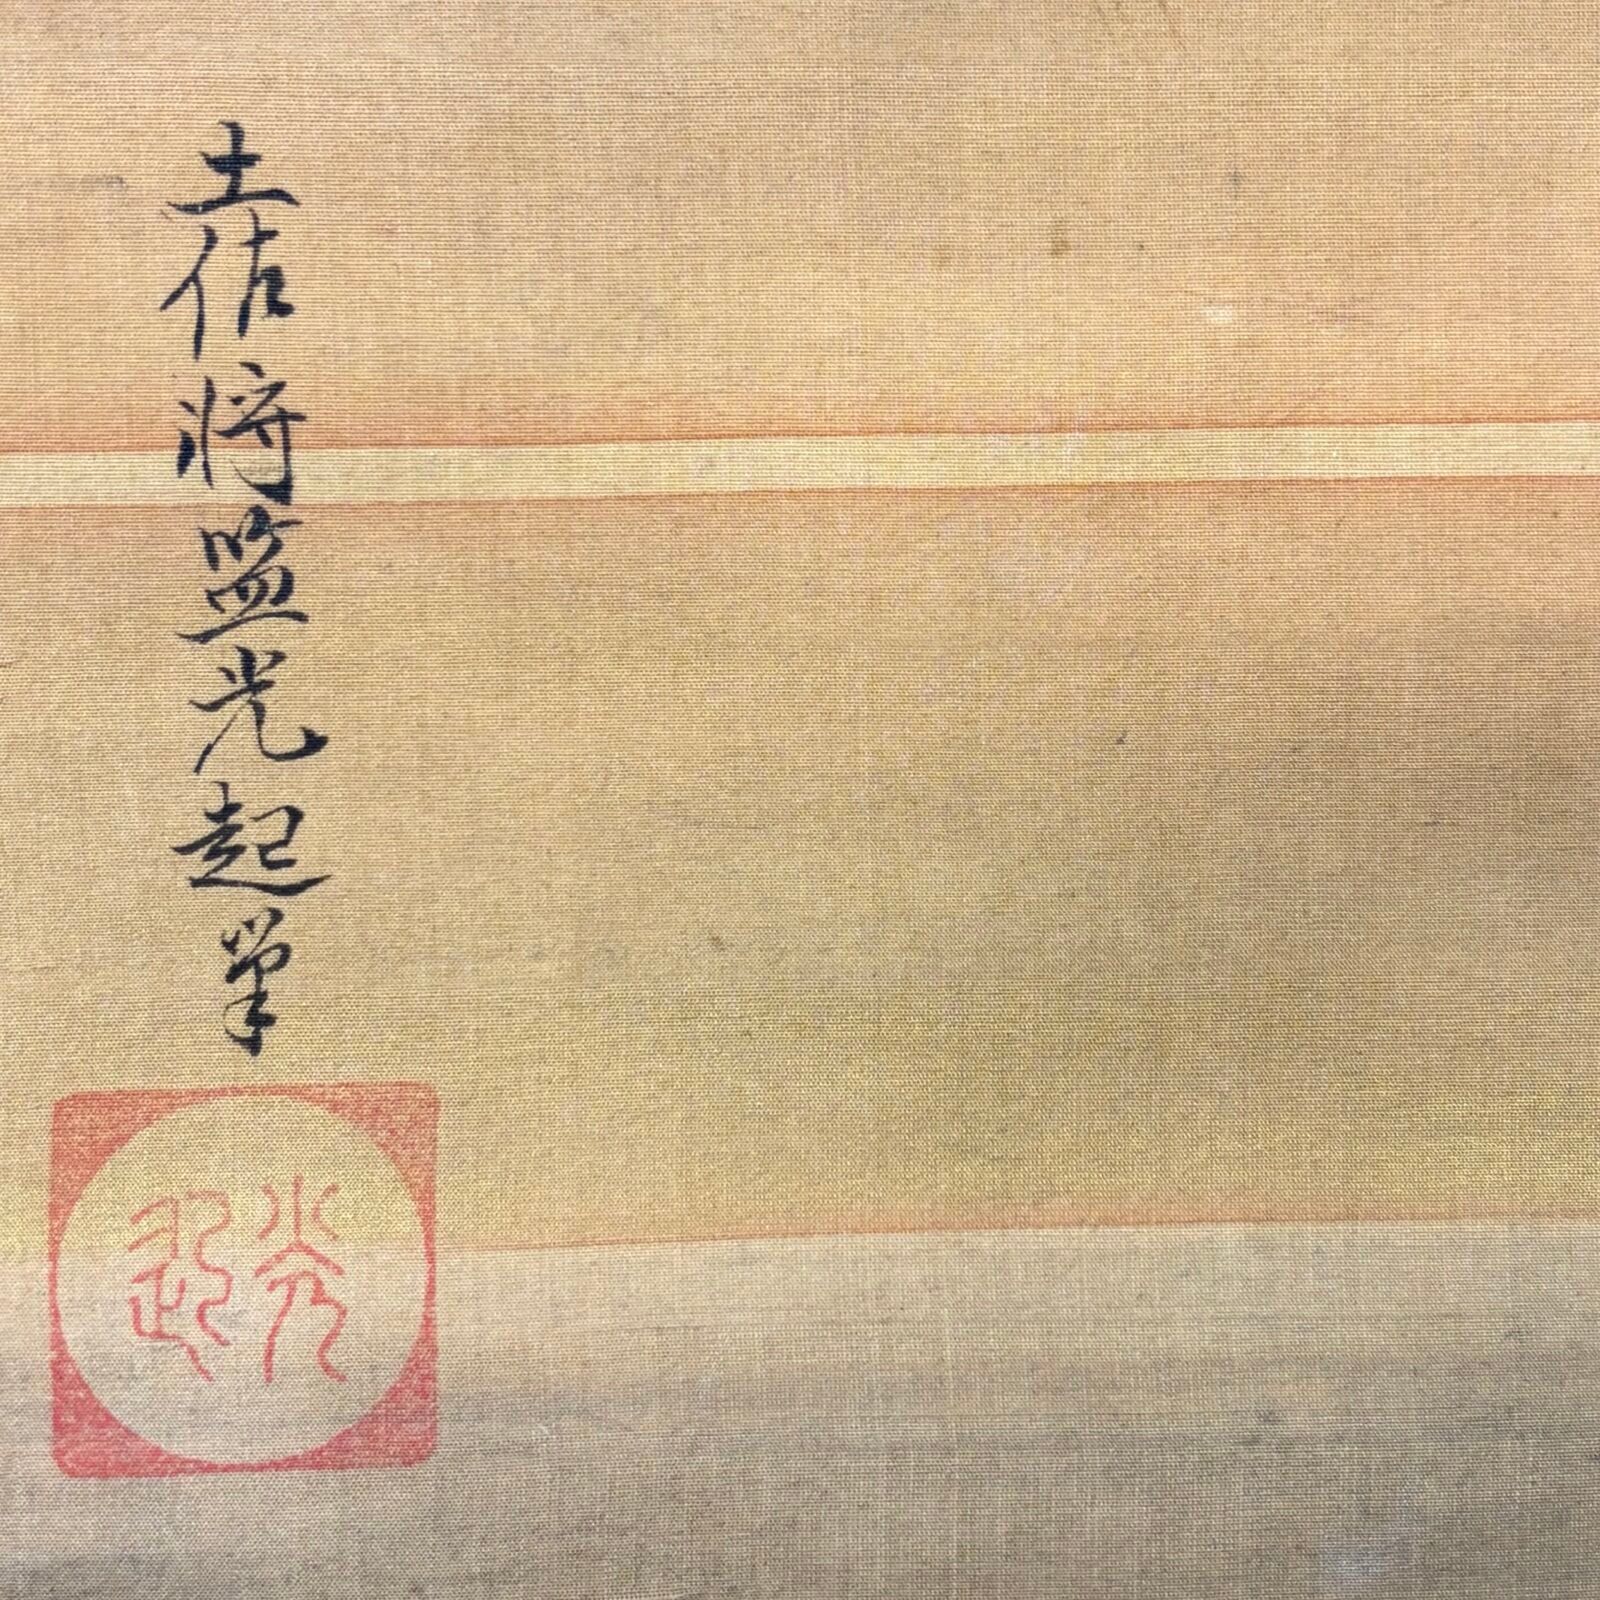 土佐将監光起筆
光起